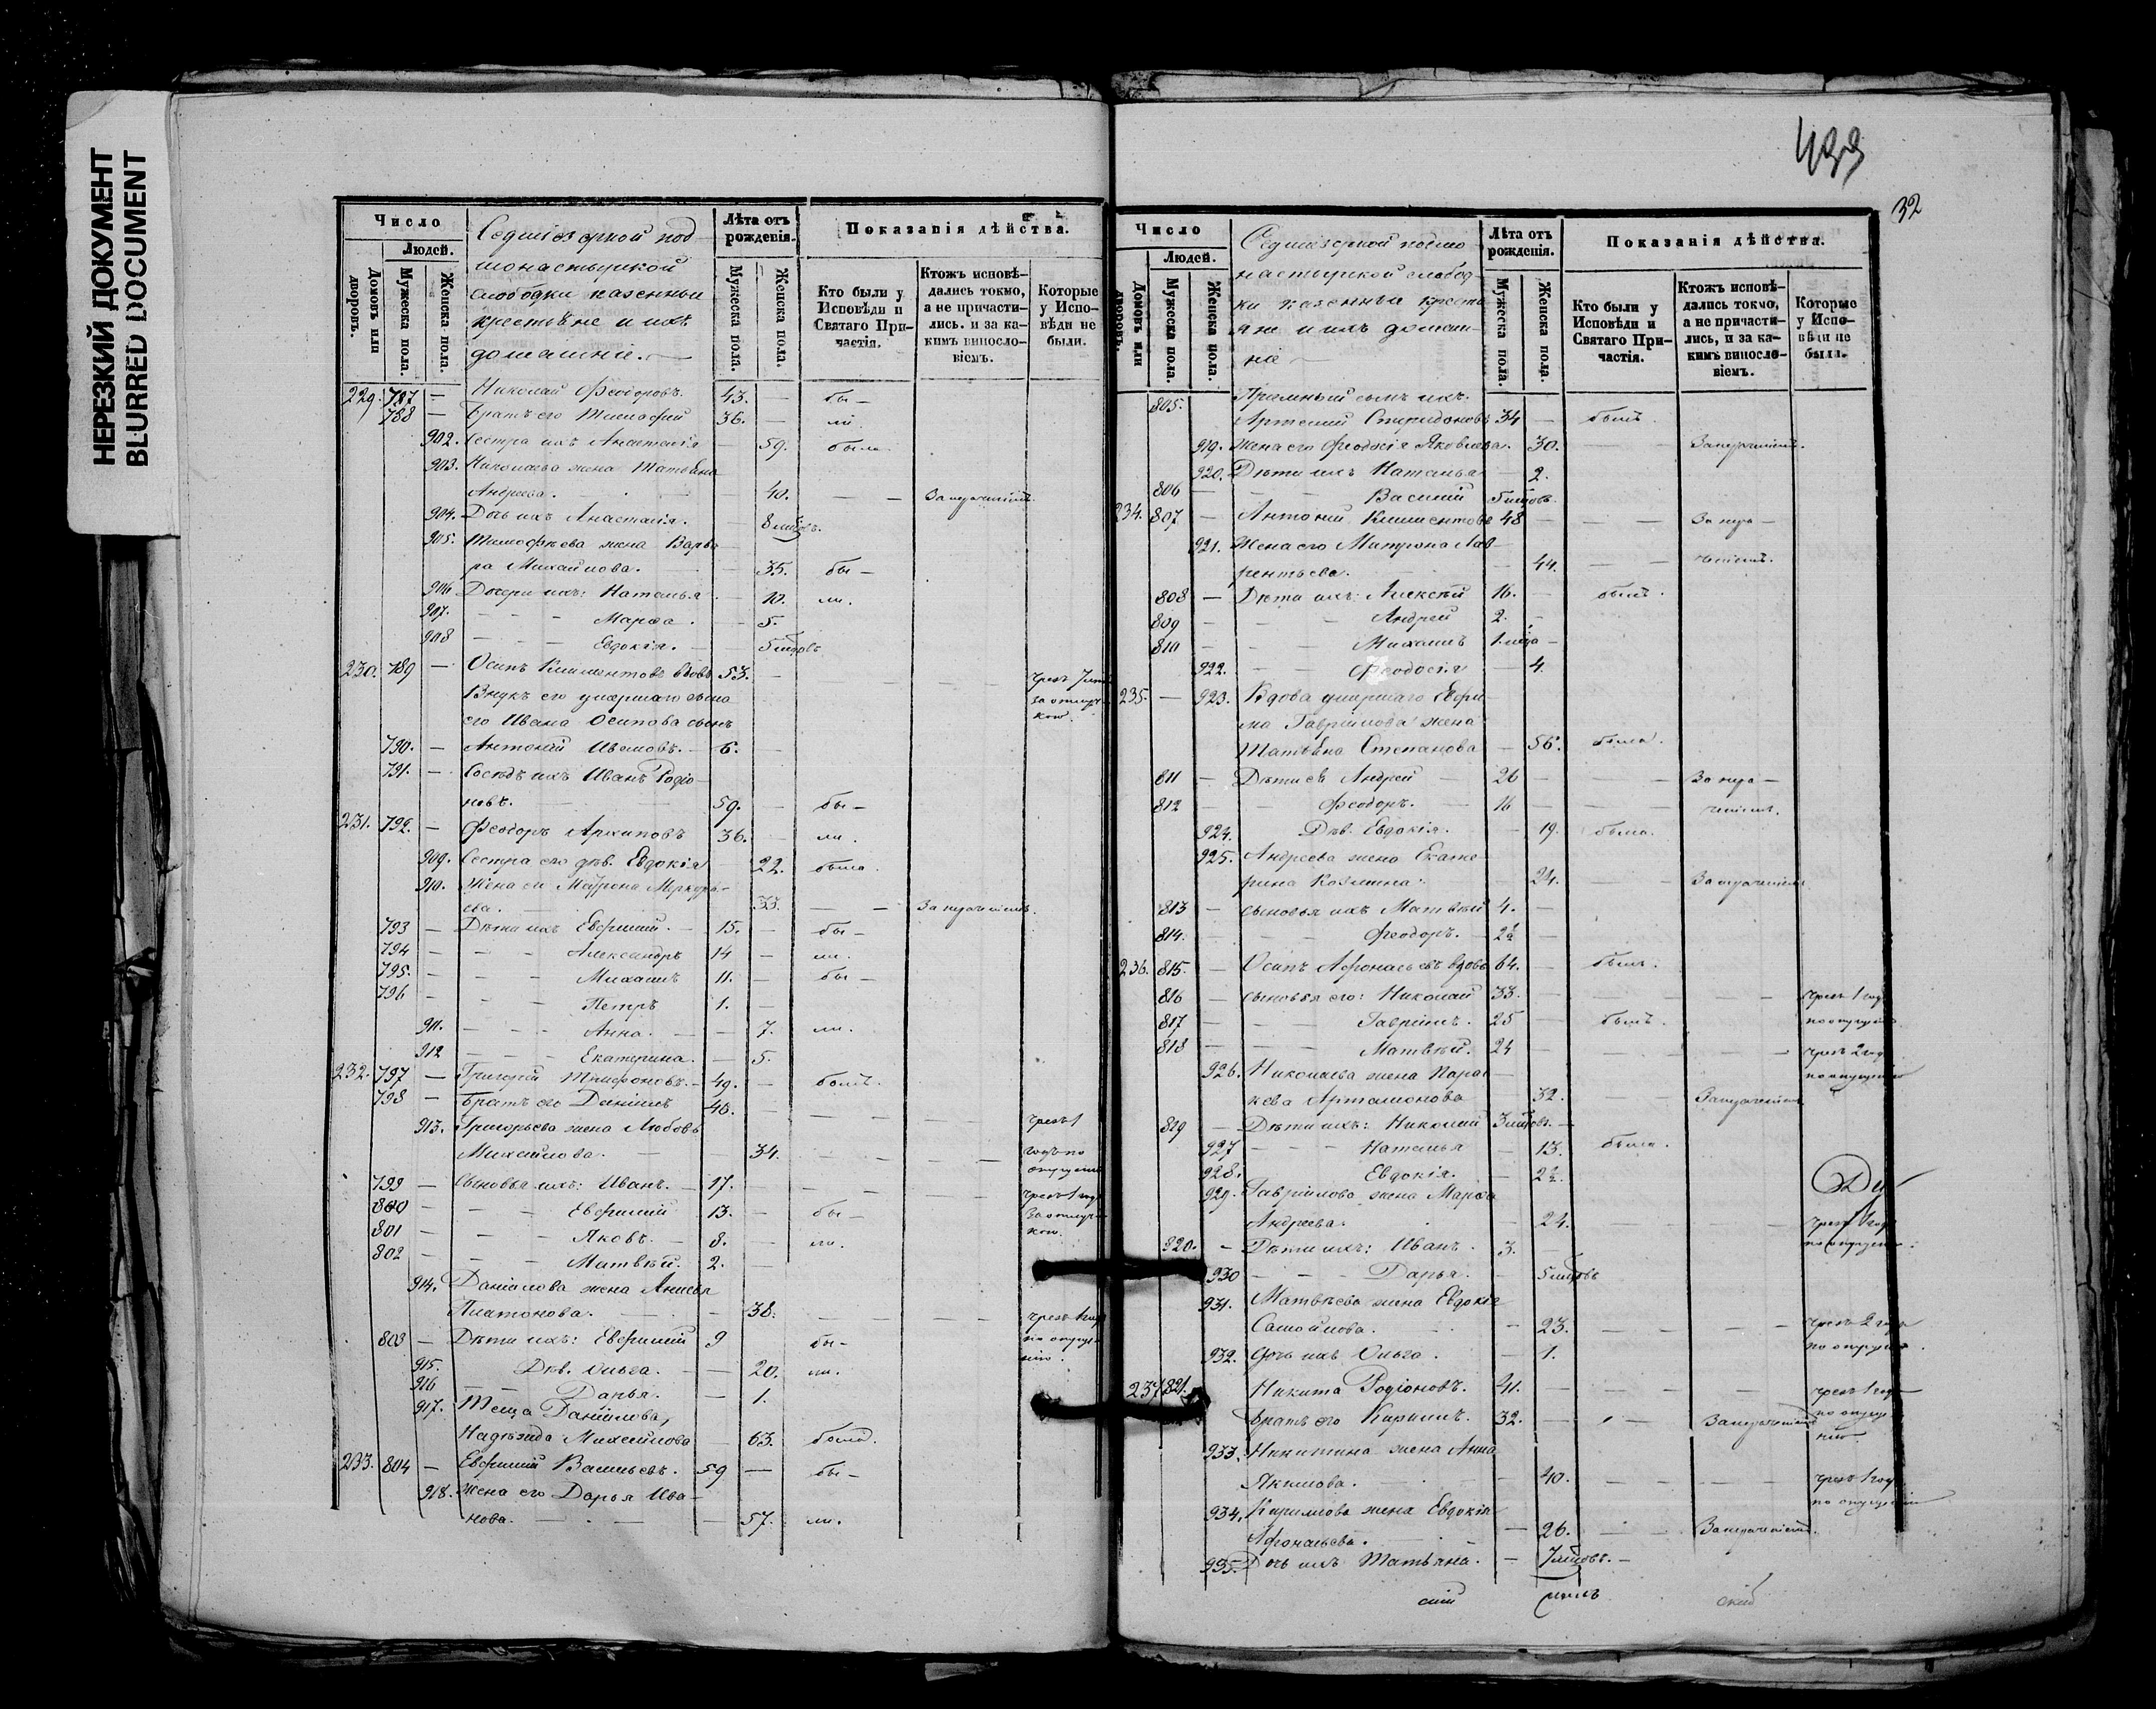 НЕРЕЗКИЙ ДОКУМЕНТ
BLURRED DOCUMENT
Число
Людей.
Домовъ или дворовъ.
Мужеска пола.
Женска пола.
Седміезерной под
монастырской
слободки казенные
крестьяне и ихъ
домашніе.
Лѣта отъ рожденія.
Мужеска пола.
Женска пола.
Показанія дѣйства.
Кто были у Исповѣди и Святаго Причастія.
Ктожъ исповѣдались токмо, а не причастились. и за какимъ винословіемъ.
Которые у Исповѣди не были.
229. 787 — Николай Феодоровъ. 43. — бы-
788 — Братъ его Тимофей 36. — ли.
902. Сестра ихъ Анастасія — 59. была
903. Николаева жена Татьяна
Андреева. — 40. — —
904. Дочь ихъ Анастасія. — 8 мцовъ.
905. Тимофѣева жена Варва-
ра Михайлова. — 35. бы-
906 Дочери ихъ: Наталья — 10. ли.
907. — Марѳа. — 5.
908 — Евдокія. — 5 мцовъ
230. 789 — Осипъ Климентовъ вдовъ 53. — чрезъ
Внукъ его умершаго сына за отлуч-
его Ивана Осипова сынъ кою.
790. — Антоній Ивановъ. — 6. —
791. — Сосѣдъ ихъ Иванъ Родіо-
новъ. — 59. — бы-
231. 792. — Феодоръ Архиповъ 36. — ли.
909. Сестра его дѣв. Евдокія 22. была.
910. Жена его Матрона Меркурь-
ева. — 33. — —
793 — Дѣти ихъ Евфимій. — 15. — бы-
794 — Александръ 14 — ли.
795. — Михаилъ 11. — бы-
796 — Петръ 1. —
911. — Анна. — 7. ли.
912 — Екатерина. — 5.
232. 797 — Григорій Трифоновъ. — 49. — былъ.
798 — Братъ его Даніилъ 40. — чрезъ 1
913. Григорьева жена Любовь
Михайлова. — 34. — годъ по
799 — Сыновья ихъ: Иванъ. — 17. — чрезъ 1 годъ
800 — Евфимій 13. — бы- за отлуч-
801 — Яковъ. — 8. — ли. кою.
802 — Матвѣй. 2. —
914. Даніилова жена Анисья
Платонова. — 38. — чрезъ 1 годъ
803 — Дѣти ихъ: Евфимій 9 бы-
915. Дѣв. Ольга. — 20. ли.
916 — Дарья. — 1.
917. Теща Даніилова,
Надежда Михайлова — 63. была.
233. 804 — Евфимій Васильевъ. 59 — бы-
918. Жена его Дарья Ива-
нова. — 57. ли.
32
Число
Людей.
Домовъ или дворовъ.
Мужеска пола.
Женска пола.
Седміезерной подмо
настырской слобод-
ки казенные кресть
яне и ихъ домаш-
ніе
Лѣта отъ рожденія.
Мужеска пола.
Женска пола.
Показанія дѣйства.
Кто были у Исповѣди и Святаго Причастія.
Ктожъ исповѣдались токмо, а не причастились, и за какимъ винословіемъ.
Которые у Исповѣди не были.
805. Пріемный сынъ ихъ
Артемій Спиридоновъ 34 — былъ
919. Жена его Феодосія Яковлева. 30. —
920. Дѣти ихъ Наталья — 2.
806 — Василій 5 мцовъ
234. 807 — Антоній Климентовъ 48 — —
921. Жена его Матрона Лав-
рентьева. — 44. —
808 — Дѣти ихъ: Алексѣй 16. — былъ.
809 — Андрей 2. —
810 — Михаилъ 1 мца —
922. — Феодосія — 4.
235. — 923. Вдова умершаго Евфи-
ма Гавріилова жена
Татьяна Степанова — 56. была.
811 — Дѣти ея Андрей 26 —
812 — Феодоръ. — 16 —
924. Дѣв. Евдокія. — 19. была.
925. Андреева жена Екате-
рина Козмина. 24. —
813 — сыновья ихъ Матвѣй 4. —
814. — Феодоръ. — 2½ —
236. 815. — Осипъ Афонасьевъ вдовъ 64. — былъ.
816 — сыновья его: Николай 33. — чрезъ 1 годъ
817 — Гавріилъ. 25 — былъ.
818 — Матвѣй. 24 — чрезъ 2 года
926. Николаева жена Парас-
кева Артамонова 32. —
819 — Дѣти ихъ: Николай 3 мцовъ. —
927 — Наталья — 13. была.
928. Евдокія. — 2½.
929. Гавріилова жена Марѳа
Андреева. — 24. — чрезъ 1 годъ
820. — Дѣти ихъ: Иванъ. 3.
930 — Дарья. — 5 мцовъ
931. Матвѣева жена Евдокія
Самойлова. — 23. — чрезъ 2 года
932. Дочь ихъ Ольга. — 1.
237 821. Никита Родіоновъ. 41. — чрезъ 1 годъ
Братъ его Кириллъ. 32. —
933. Никитина жена Анна
Якимова. — 40. — чрезъ 1 годъ
934. Кирилова жена Евдокія
Афонасьева. — 26. —
935. Дочь ихъ Татьяна. — 7 мцовъ. —